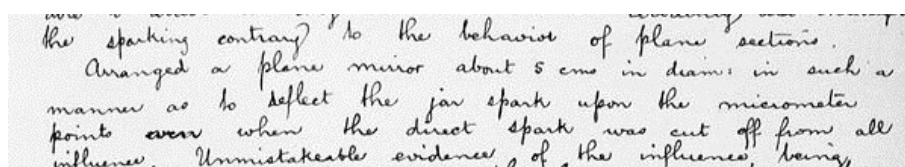 the sparking contrary to the behavior of plane sections.
Arranged a plane mirror about 5 cms in diam: in such a
manner as to deflect the jar spark upon the micrometer
points even when the direct spark was cut off from all
influence. Unmistakeable evidence of the influence being